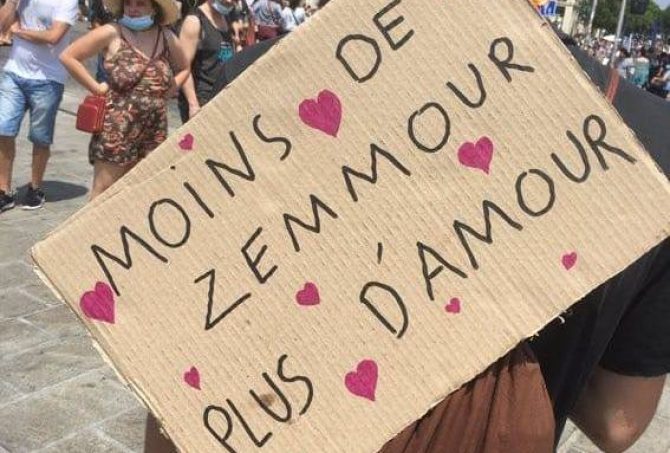 MOINS DE
ZEMMOUR
PLUS D'AMOUR